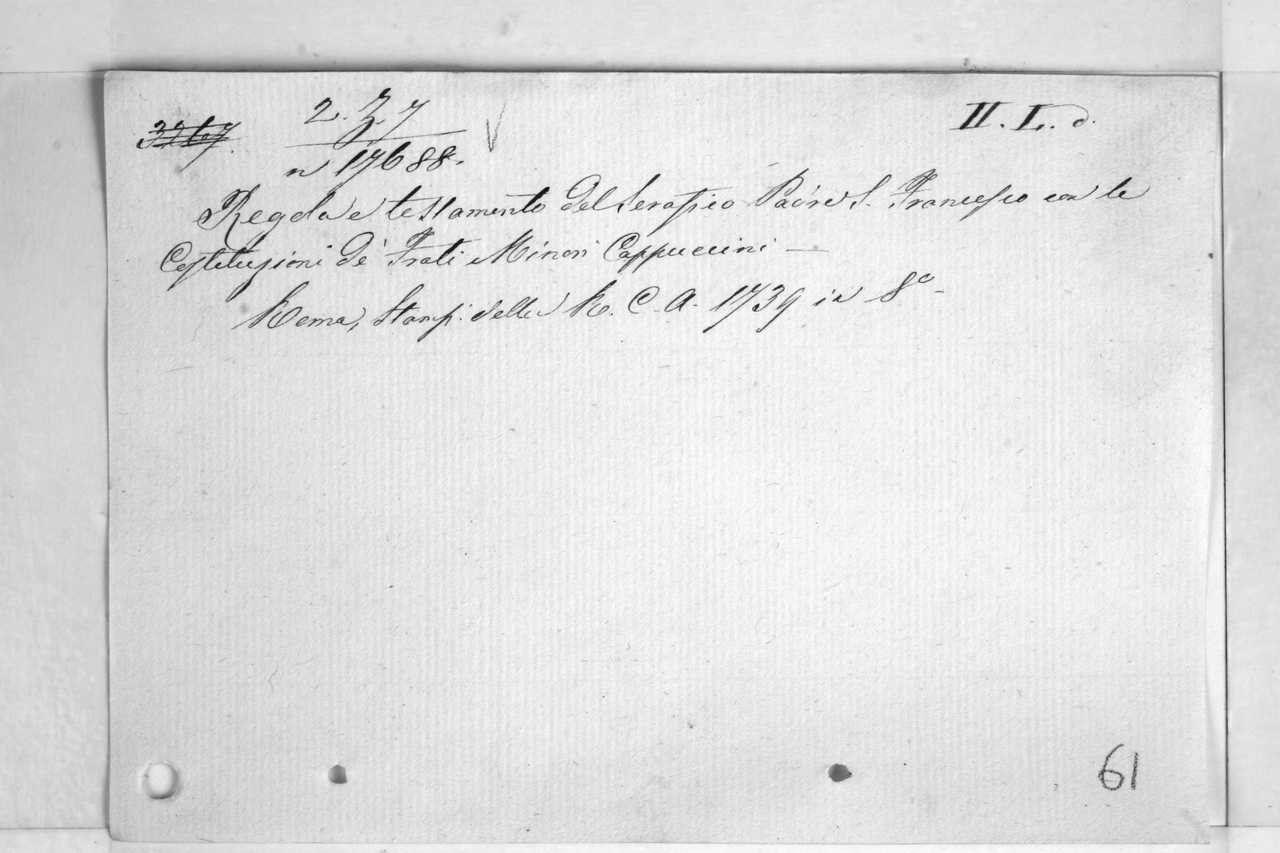 2. Z. 7 II. L. d.
3267
n 17688.
Regola e testamento del Serafico Padre S. Francesco con le
Costituzioni de' Frati Minori Cappuccini —
Roma, Stamp. della R. C. A. 1739 in 8º
61